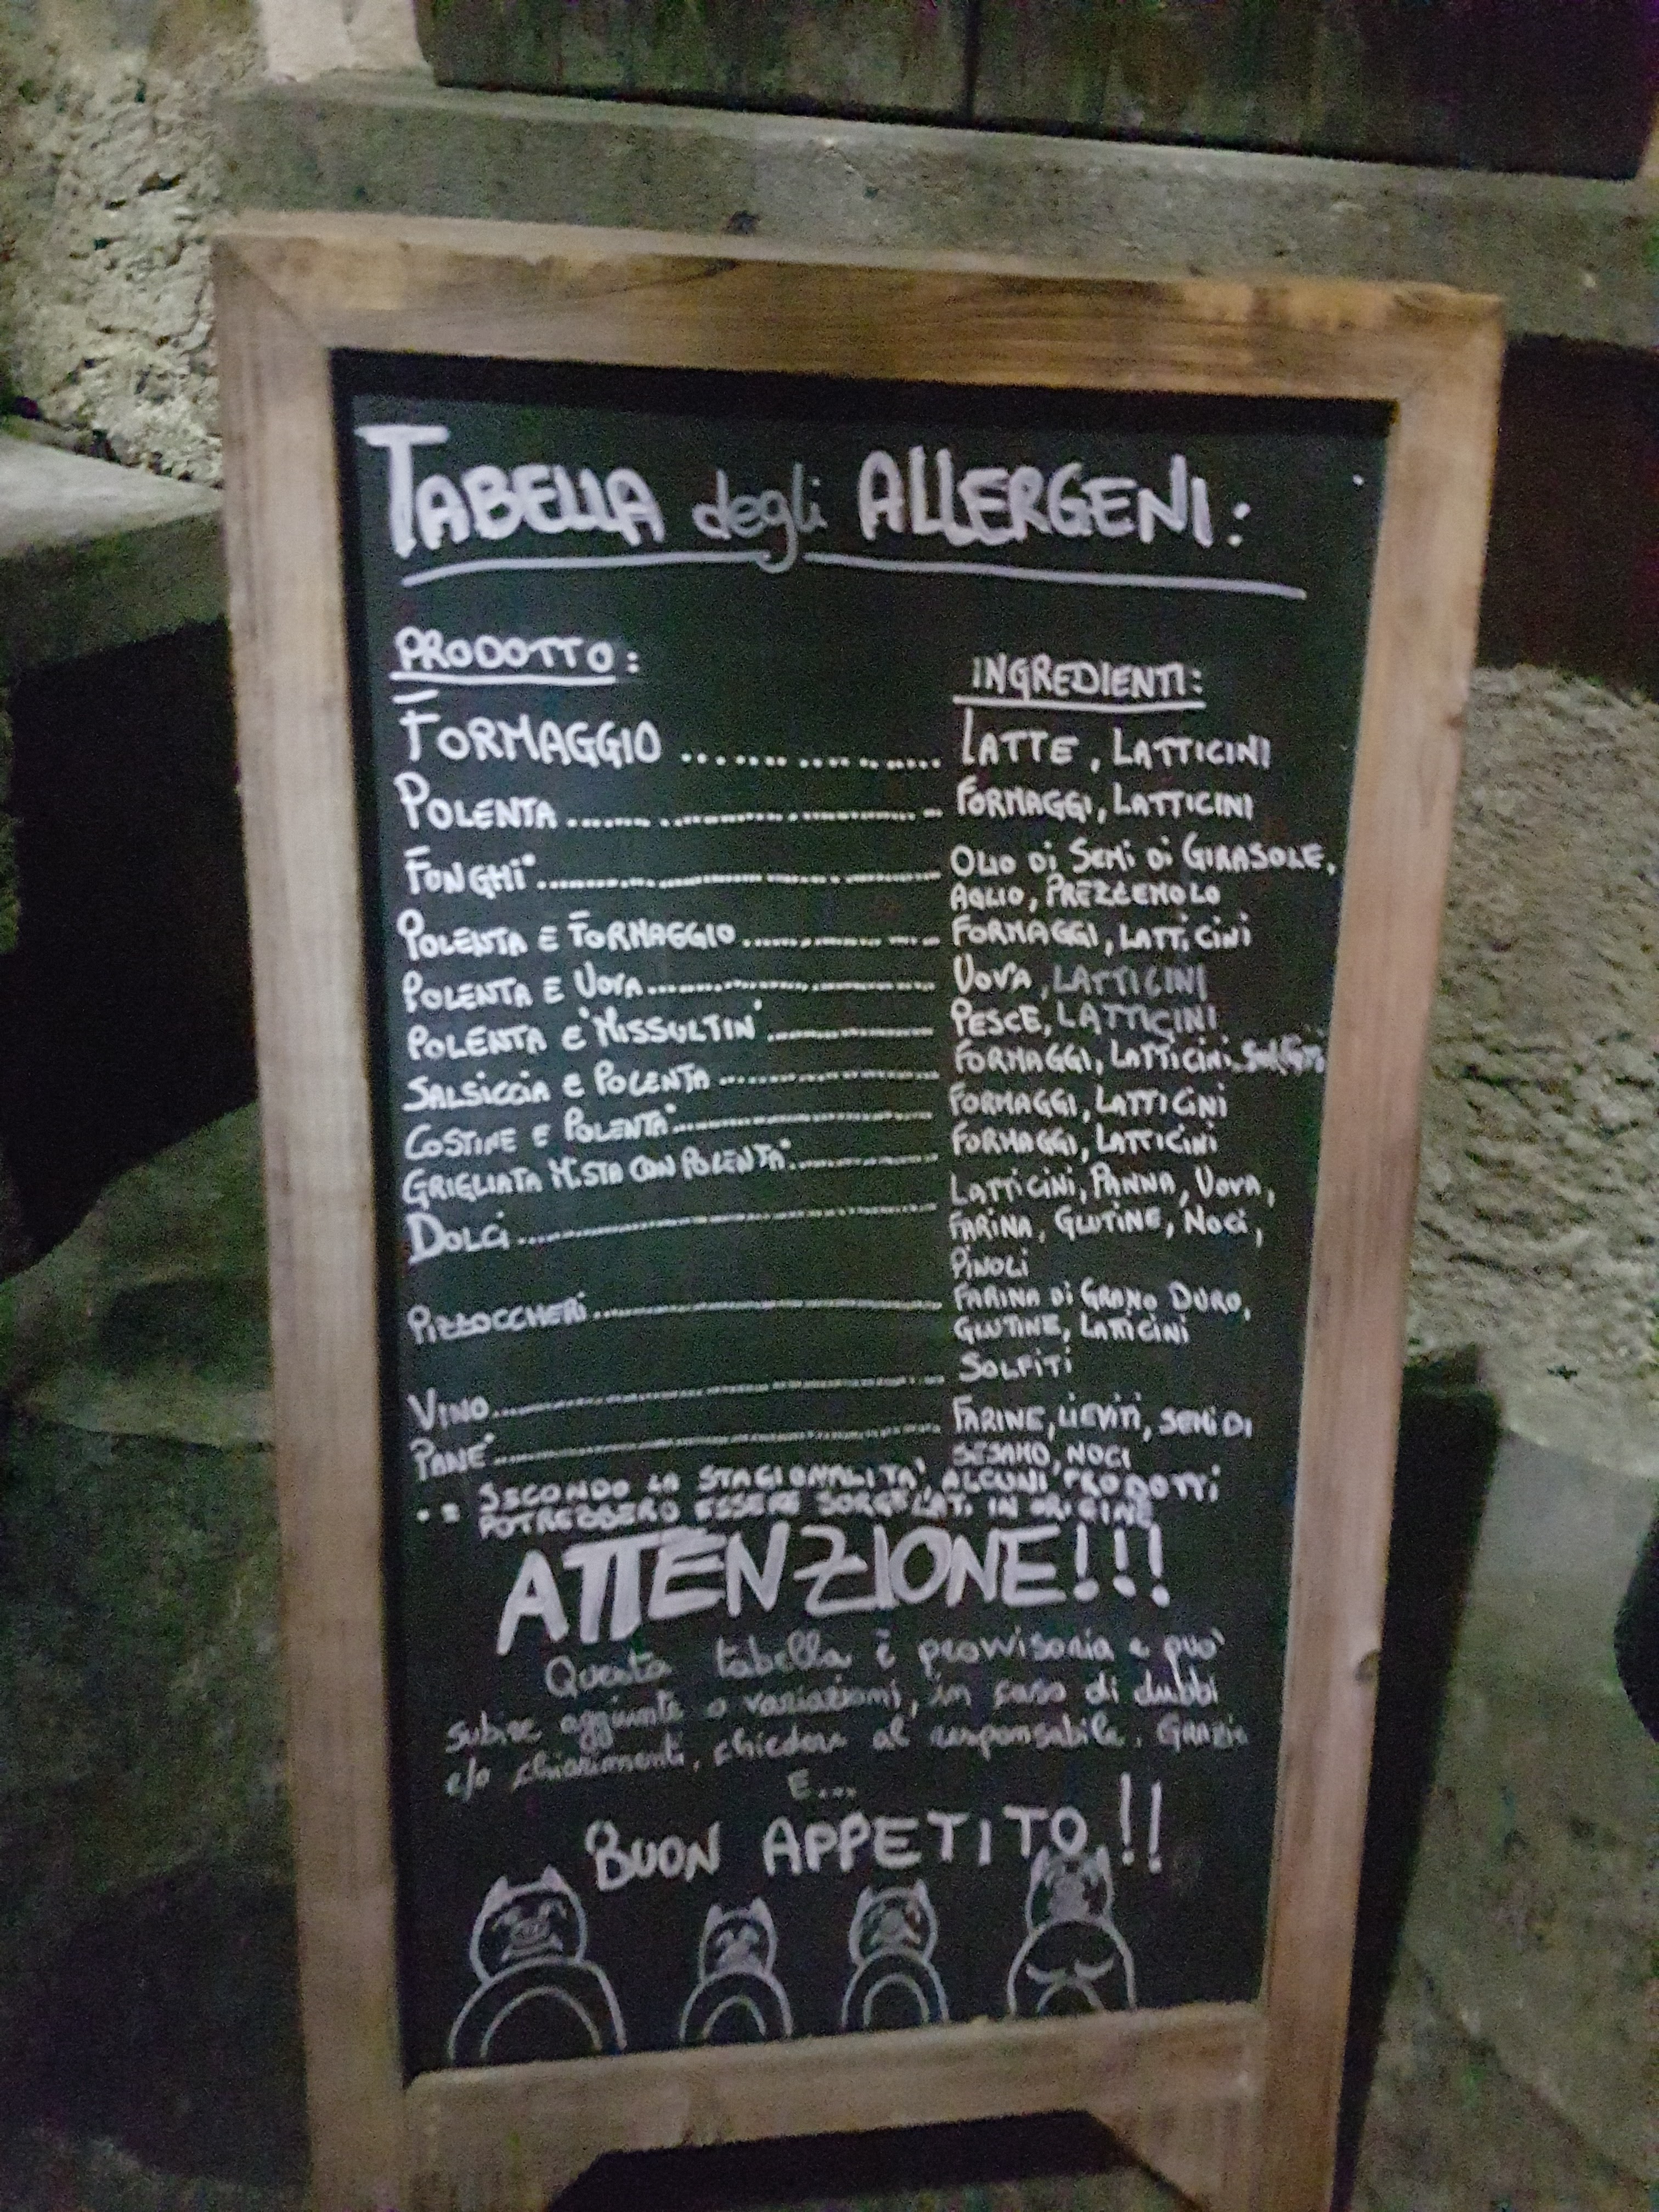 TABELLA degli ALLERGENI:
PRODOTTO: INGREDIENTI:
FORMAGGIO .................. LATTE, LATTICINI
POLENTA .................. FORMAGGI, LATTICINI
FUNGHI* .................. OLIO Di SEMi Di GIRASOLE,
AGLIO, PREZZEMOLO
POLENTA E FORMAGGIO .................. FORMAGGI, LATTiCiNi
POLENTA E UOVA .................. UOVA, LATTICINI
POLENTA E "MISSULTIN" .................. PESCE, LATTICINI
SALSICCIA E POLENTA .................. FORMAGGI, LATTICINI, SOLFITI
COSTINE E POLENTA* .................. FORMAGGI, LATTICINI
GRIGLIATA MiSTA CON POLENTA* .................. FORMAGGI, LATTICINI
DOLCI .................. LATTICINI, PANNA, UOVA,
FARINA, GLUTINE, NOCI,
PINOLI
PIZZOCCHERI .................. FARINA Di GRANO DURO,
GLUTINE, LATICINI
VINO .................. SOLFITI
PANE* .................. FARINE, LIEVITI, SEMI DI
SESAMO, NOCI
* = SECONDO LA STAGIONALITA', ALCUNI PRODOTTI
POTREBBERO ESSERE SURGELATI IN ORIGINE
ATTENZIONE!!!
Questa tabella è provvisoria e può
subire aggiunte o variazioni, in caso di dubbi
e/o chiarimenti, chiedere al responsabile. GRAZIE
E...
BUON APPETITO!!